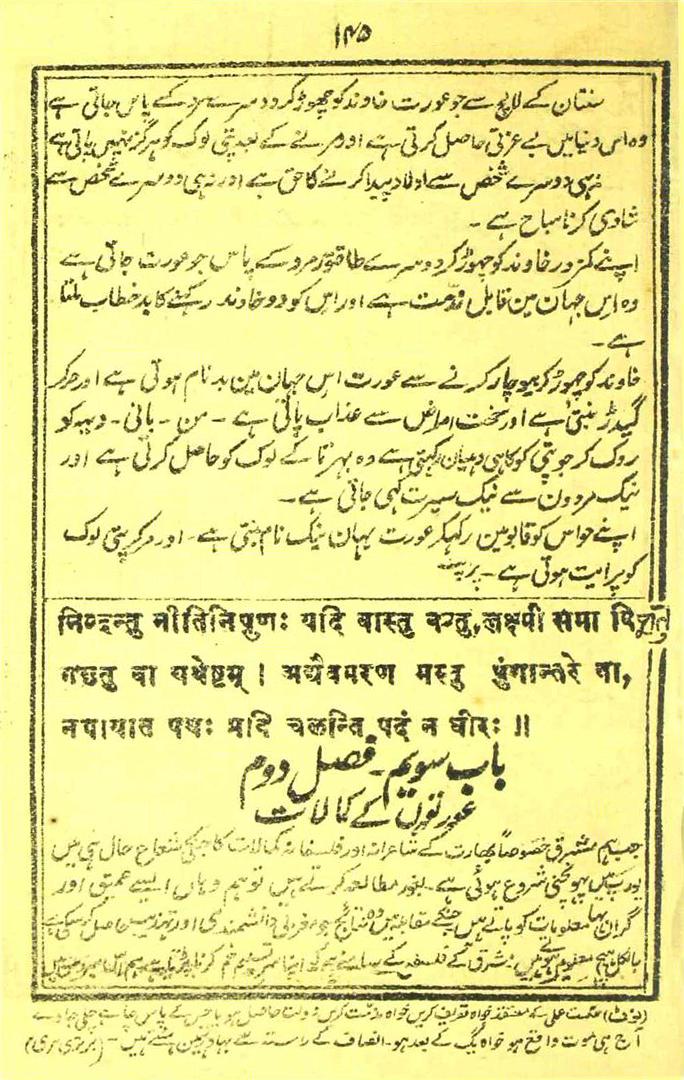 ۱۴۵
سنتان کے لالچ سے جو عورت خاوند کو چھوڑ کر دوسرے مرد کے پاس جاتی ہے
وہ اس دنیا میں بے عزتی حاصل کرتی ہے اور مرنے کے بعد پتی لوک کو ہرگز نہیں پاتی ہے
نہ ہی دوسرے شخص سے اولاد پیدا کرنے کا حق ہے اور نہ ہی دوسرے شخص سے
شادی کرنا مباح ہے ۔
اپنے کمزور خاوند کو چھوڑ کر دوسرے طاقتور مرد کے پاس جو عورت جاتی ہے
وہ اس جہان مین قابل مذمت ہے اور اس کو دو خاوند رکہنے کا بد خطاب ملتا
ہے ۔
خاوند کو چھوڑ کر بیوچار کرنے سے عورت اس جہان مین بدنام ہوتی ہے اور مر کر
گیدڑ بنتی ہے اور سخت امراض سے عذاب پاتی ہے ۔ من ۔ بانی ۔ دیہہ کو
روک کر جو پتی کو کا ہی دہیان رکہتی ہے وہ بہرتا کے لوک کو حاصل کرتی ہے اور
نیک مردون سے نیک سیرت کہی جاتی ہے ۔
اپنے حواس کو قابو مین رکہکر عورت یہان نیک نام بنتی ہے ۔ اور مر کر پتی لوک
کو پراپت ہوتی ہے ۔
निन्दन्तु नीतिनिपुणः यदि वास्तु वन्तु, लक्ष्मी समा वि
गच्छतु वा यथेष्टम् । अद्यैवमरण मस्तु युगान्तरे वा,
नयायात पथः प्रदि चलन्ति पदं न धीरः ॥
باب سویم ۔ فصل دوم
عورتوں کے کمالات
جب ہم مشرق خصوصاً بھارت کے شاعرانہ اور فلسفانہ کمالات کا جنکی شعاع حال ہی میں
یورپ میں پہونچنی شروع ہوئی ہے ۔ بغور مطالعہ کرتے ہیں تو ہم وہاں ایسے عمیق اور
گران بہا معلومات کو پاتے ہیں جنکے مقابلہ میں وہ نتائج جو مغربی دانشمندی اور تہذیب حاصل کر سکی ہے
بالکل ہیچ معلوم ہوتے ہیں مشرق کے فلسفہ کے سامنے ہم کو اپنا سر تسلیم خم کرنا پڑتا ہے
(نوٹ) حکمت عملی کے معتقد خواہ تعریف کریں خواہ مذمت کریں ۔ دولت حاصل ہو یا جس کے پاس چاہے چلی جاوے
آج ہی موت واقع ہو خواہ یگ کے بعد ہو ۔ انصاف کے راستہ سے بہادر نہیں ہٹتے ہیں ۔ (بھرتری ہری)